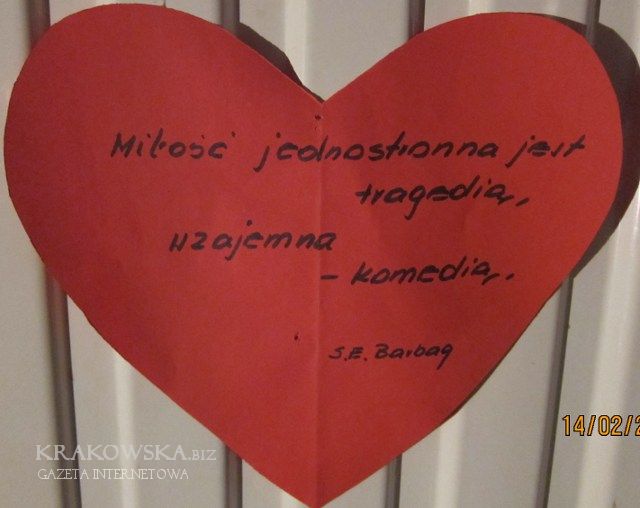 Miłość jednostronna jest
tragedią,
wzajemna
- komedią.
S.E. Barbag
14/02/2
KRAKOWSKA.BIZ
GAZETA INTERNETOWA